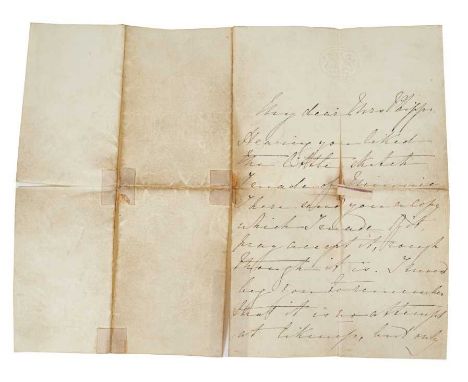 My dear Mrs Phipps
Hearing you liked
the little sketch
I made of
I here send you a copy
which I made of it
pray accept it, rough
though it is. I must
beg you to remember
that it is no attempt
at likeness, but only